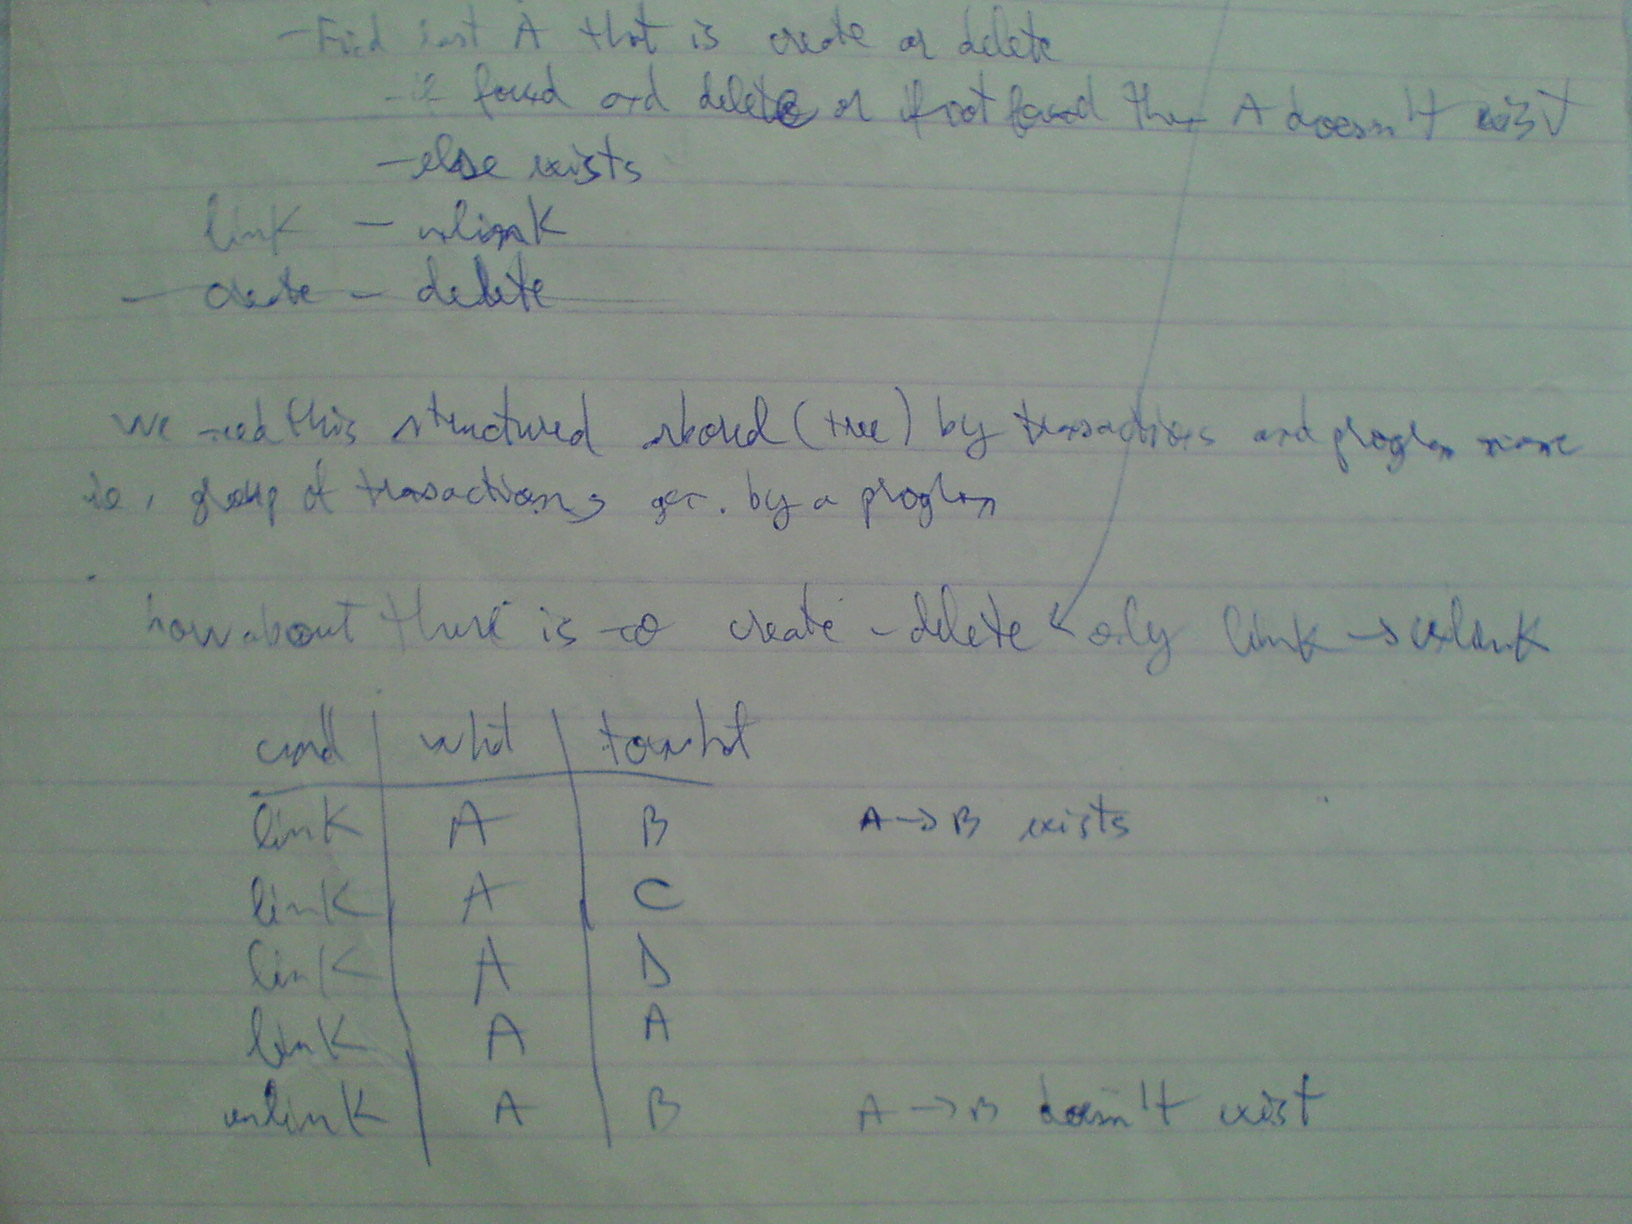 - Find last A that is create or delete
- if found and delete or if not found then A doesn't exist
- else exists
link - unlink
- create - delete
we need this structured stored (tree) by transactions and program name
ie, group of transactions gen. by a program
how about there is no create - delete only link -> unlink
cmd | what | towhat
link | A | B A -> B exists
link | A | C
link | A | D
link | A | A
unlink | A | B A -> B doesn't exist